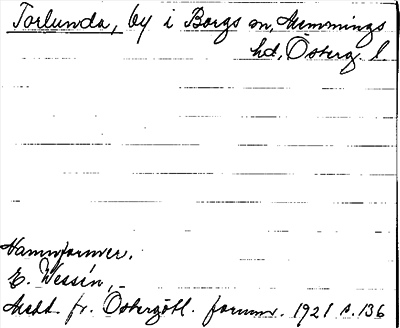 Torlunda, by i Borgs sn, Memmings
hd, Österg. l
Namnformer.
E. Wessén,
Medd. fr. Östergötl. fornm. 1921 s. 136